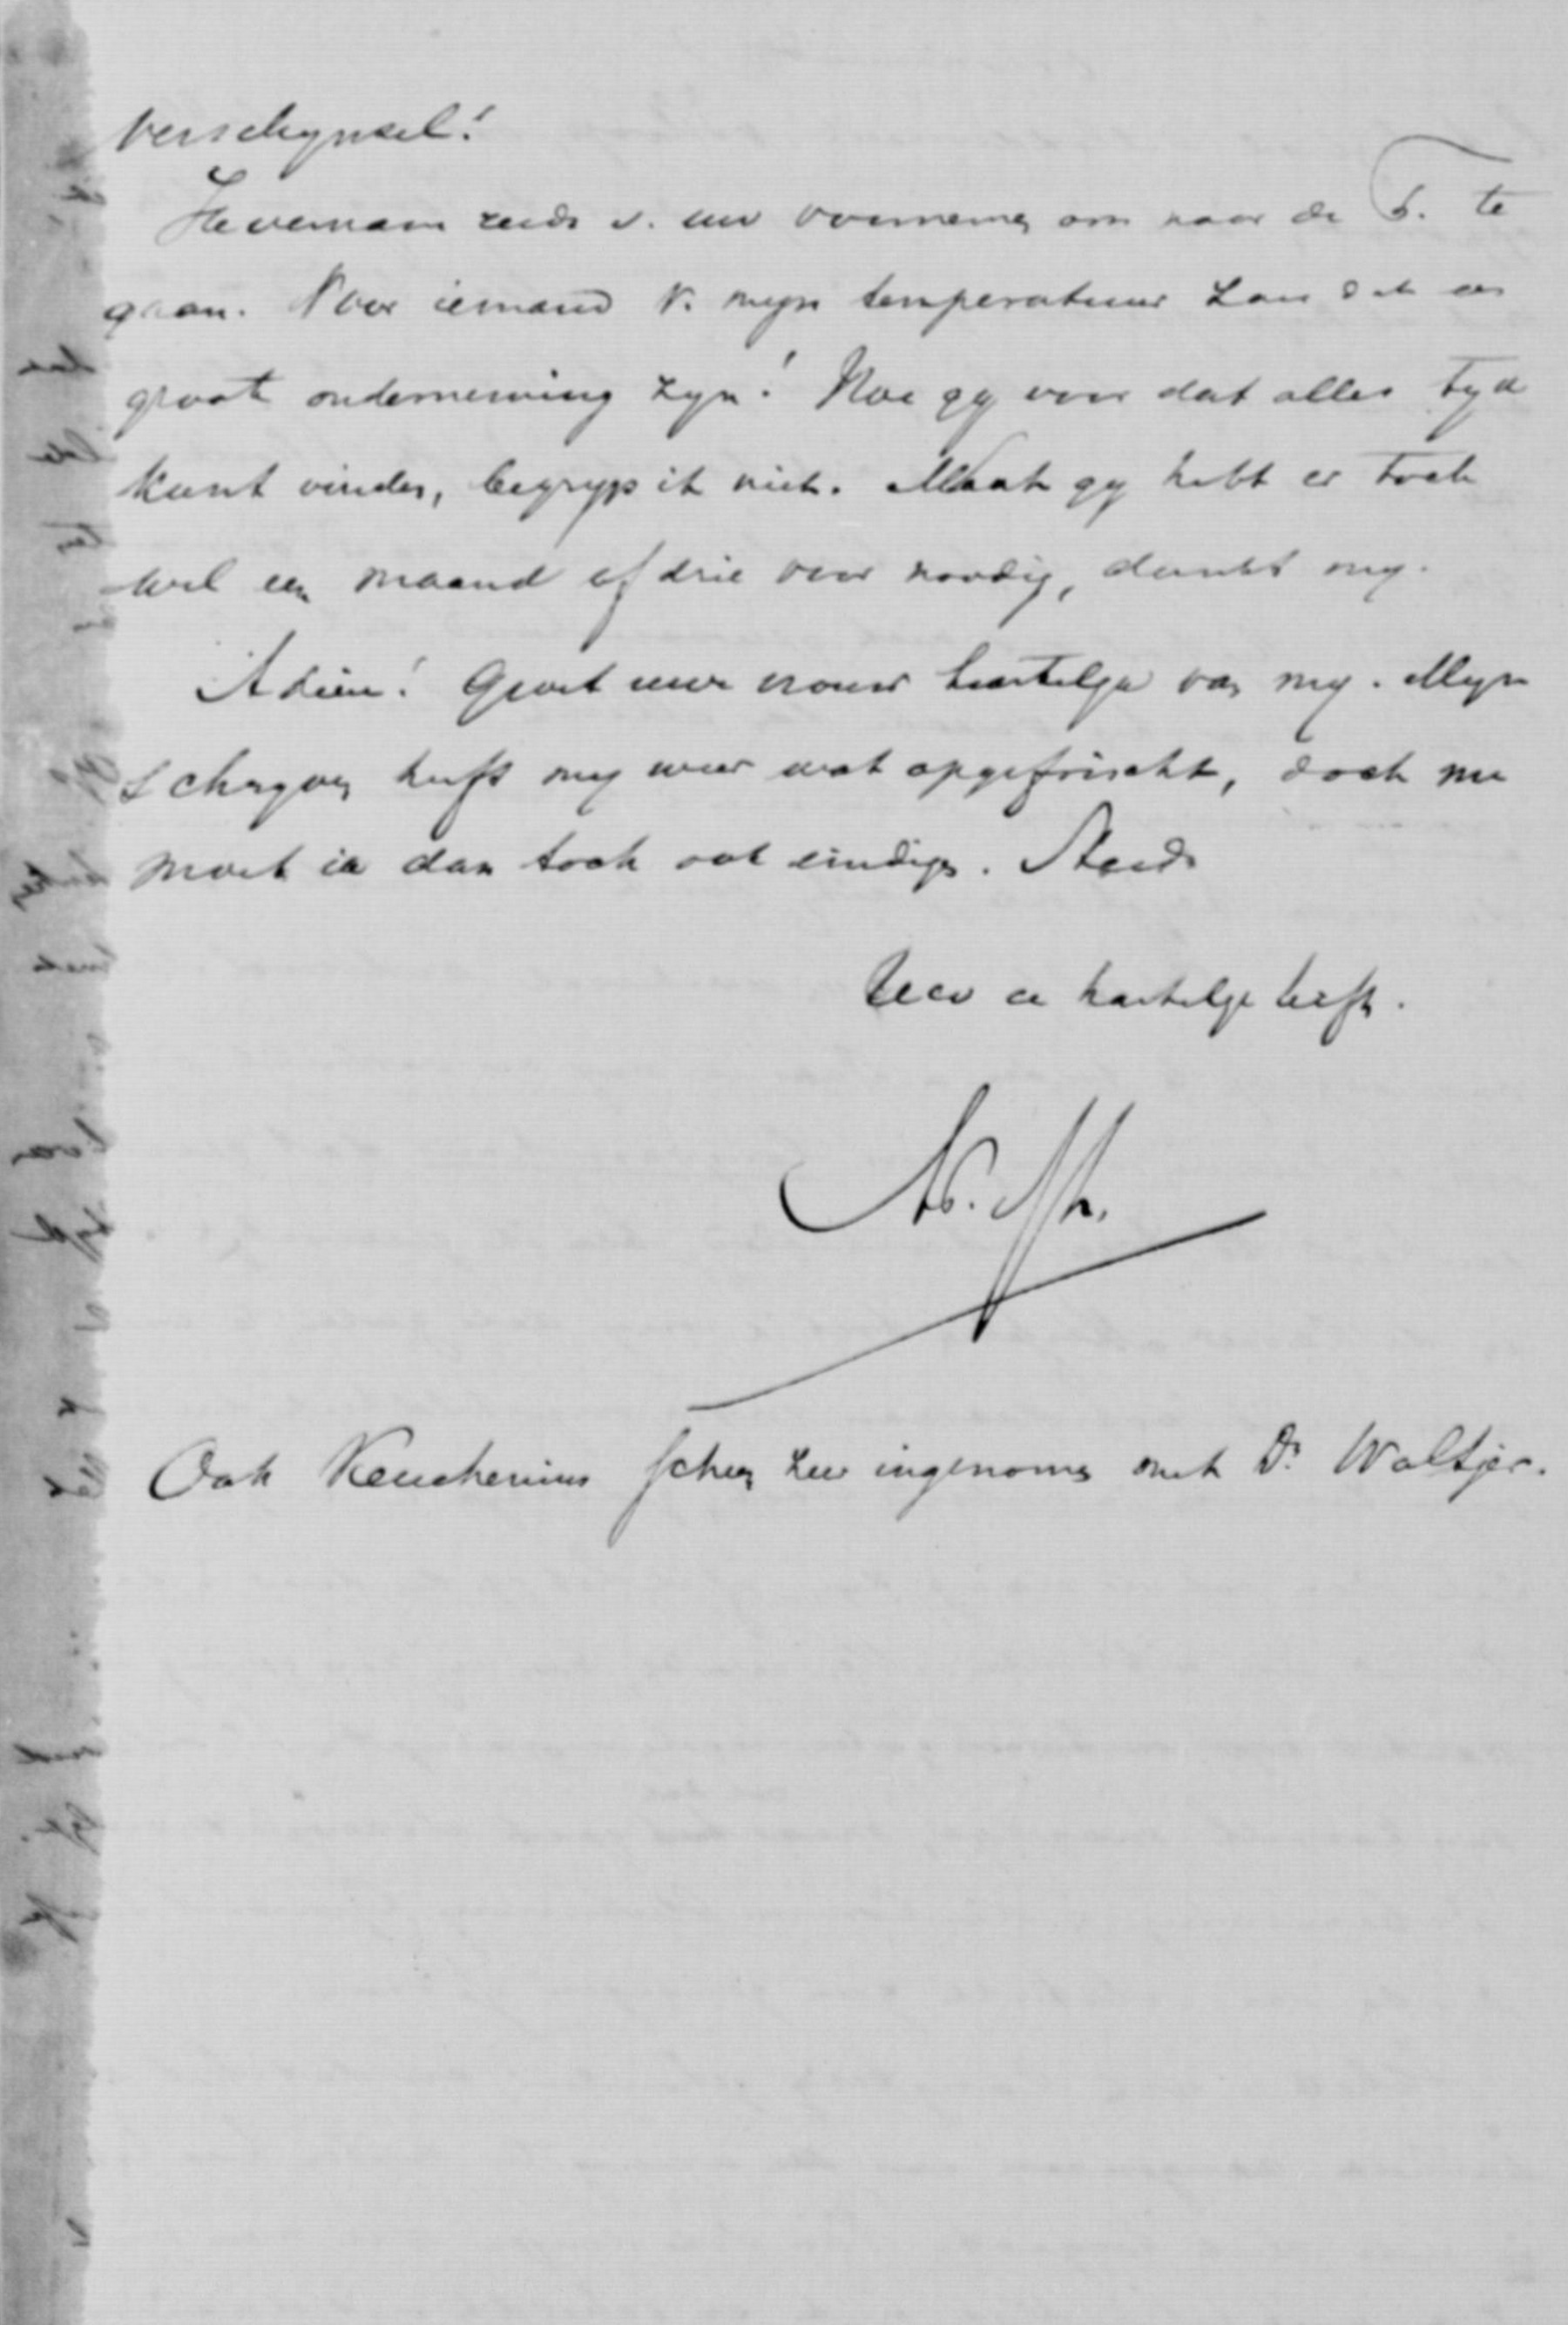 verschynsel!
Hoveman reeds v. uw voornemen om naar de T. te
gaan. Voor iemand v. myn temperatuur zou dat een
groote onderneming zyn! Hoe gy voor dat alles tyd
kunt vinden, begryp ik niet. Maar gy hebt er toch
wel een maand of drie voor noodig, dunkt my.
Adieu! Groet uwe vrouw hartelyk van my. Myn
schryven heeft my weer wat opgefrischt, doch nu
moet ik dan toch ook eindigen. Steeds
Uw a hartelyk liefh.
Ook Keuchenius scheen zeer ingenomen met Dr. Woltjer.